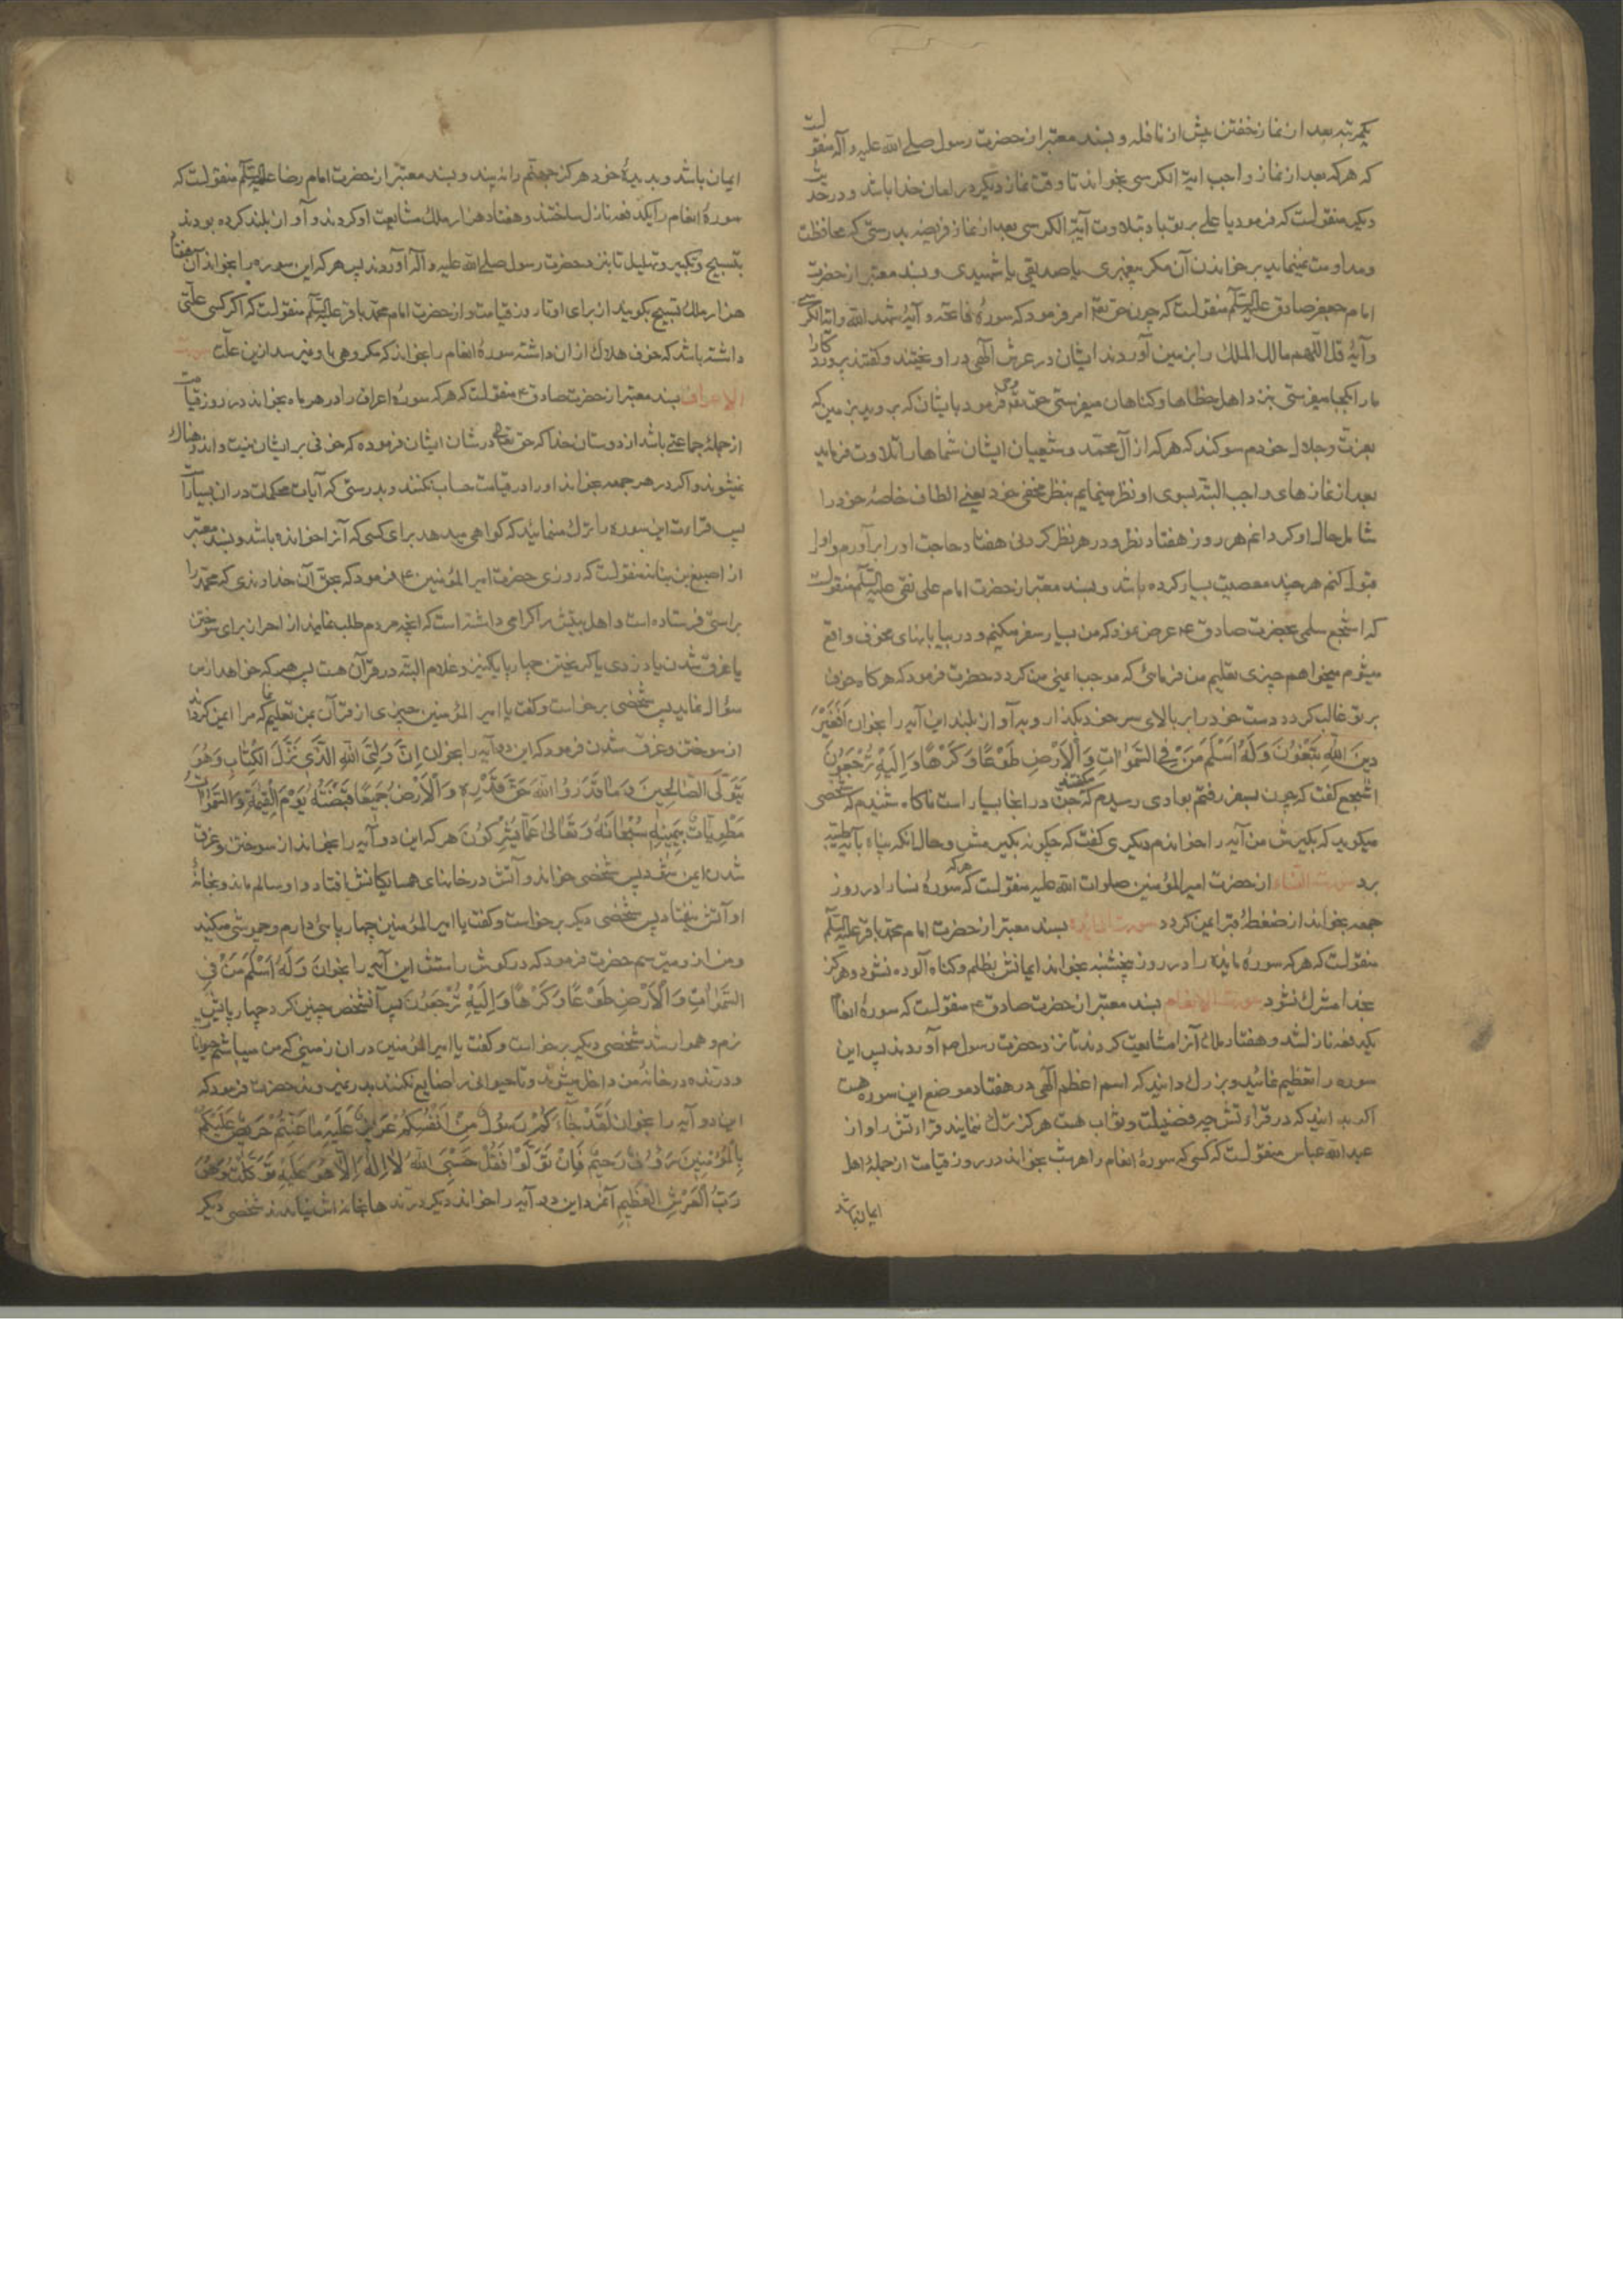 یکمرتبه بعد از نماز خفتن پیش از نافله و بسند معتبر از حضرت رسول صلی الله علیه و آله منقولست
که هر که بعد از نماز واجب آیة الکرسی بخواند تا وقت نماز دیگر در امان خدا باشد و در حدیث
دیگر منقولست که فرمود یا علی بر تو باد بتلاوت آیة الکرسی بعد از نماز فریضه بدرستی که محافظت
و مداومت نمینماید بر خواندن آن مگر پیغمبری یا صدیقی یا شهیدی و بسند معتبر از حضرت
امام جعفر صادق علیه السلم منقولست که چون حق تعالی امر فرمود که سورهٔ فاتحه و آیهٔ شهد الله و آیة الکرسی
و آیهٔ قل اللهم مالک الملک را بزمین آوردند ایشان در عرش الهی در آویختند و گفتند پروردگارا
ما را بکجا میفرستی بنزد اهل خطاها و گناهان میفرستی حق تعالی وحی فرمود بایشان که بروید بزمین که
بعزت و جلال خودم سوگند که هر که از آل محمد و شیعیان ایشان شماها را تلاوت فرماید
بعد از نمازهای واجب البته بسوی او نظر مینمایم بنظر مخفی خود یعنی الطاف خاصهٔ خود را
شامل حال او گردانم هر روز هفتاد نظر و در هر نظر کردنی هفتاد حاجت او را برآورم و او را
قبول کنم هر چند معصیت بسیار کرده باشد و بسند معتبر از حضرت امام علی نقی علیه السلم منقولست
که اشجع سلمی بحضرت صادق ع عرض نمود که من بسیار سفر میکنم و در بیابانهای مخوف واقع
میشوم میخواهم چیزی تعلیم من فرمائی که موجب ایمنی من گردد حضرت فرمود که هر گاه خوف
بر تو غالب گردد دست خود را بر بالای سر خود بگذار و بآواز بلند این آیه را بخوان اَفَغَیْرَ
دینَ اللهِ یَبْغُونَ وَلَهُ اَسْلَمَ مَنْ فِی السَّمٰوٰاتِ وَ الْاَرْضِ طَوْعًا وَ کَرْهًا وَ اِلَیْهِ تُرْجَعُونَ
اشجع گفت که چون بسفر رفتم بوادی رسیدم که میگفتند جن در آنجا بسیار است ناگاه شنیدم که شخصی
میگوید که بگیرش من آیه را خواندم دیگری گفت که چگونه بگیرمش و حال آنکه پناه بآیه طیبه
برد سورت النساء از حضرت امیر المؤمنین صلوات الله علیه منقولست که هر که سورهٔ نسا را در روز
جمعه بخواند از ضغطهٔ قبر ایمن گردد سورت المائده بسند معتبر از حضرت امام محمد باقر علیه السلم
منقولست که هر که سورهٔ مایده را در روز پنجشنبه بخواند ایمانش بظلم و گناه آلوده نشود و هرگز
بخدا مشرک نشود سورت الانعام بسند معتبر از حضرت صادق ع منقولست که سورهٔ انعام
یکدفعه نازل شد و هفتاد ملک آنرا مشایعت کردند تا نزد حضرت رسول ص آوردند پس این
سوره را تعظیم نمائید و بزرگ دانید که اسم اعظم الهی در هفتاد موضع این سوره هست
اگر بدانید که در قراءتش چه فضیلت و ثواب هست هرگز ترک ننمایند قراءتش را و از
عبد الله عباس منقولست که کسی که سورهٔ انعام را هر شب بخواند در روز قیامت از جملهٔ اهل
ایمان باشد
ایمان باشد و بدیدهٔ خود هرگز جهنم را نه بیند و بسند معتبر از حضرت امام رضا علیه السلم منقولست که
سورهٔ انعام را یکدفعه نازل ساختند و هفتاد هزار ملک مشایعت او کردند و آواز بلند کرده بودند
بتسبیح و تکبیر و تهلیل تا بنزد حضرت رسول صلی الله علیه و آله آوردند پس هر که این سوره را بخواند آن هفتاد
هزار ملک تسبیح بگویند از برای او تا روز قیامت و از حضرت امام محمد باقر علیه السلم منقولست که اگر کسی علتی
داشته باشد که خوف هلاک از آن داشته سورهٔ انعام را بخواند که مکروهی باو نمیرسد از این علت سورت
الاعراف بسند معتبر از حضرت صادق ع منقولست که هر که سورهٔ اعراف را در هر ماه بخواند در روز قیامت
از جملهٔ جماعتی باشد از دوستان خدا که حق تعالی در شان ایشان فرموده که خوفی بر ایشان نیست و اندوهناک
نمیشوند و اگر در هر جمعه بخواند او را در قیامت حساب نکنند و بدرستی که آیات محکمات در آن بسیار است
پس قراءت این سوره را ترک منمائید که گواهی میدهد برای کسی که آنرا خوانده باشد و بسند معتبر
از اصبغ بن نباته منقولست که روزی حضرت امیر المؤمنین ع فرمود که بحق آن خداوندی که محمد را
براستی فرستاده است و اهل بیتش را گرامی داشته است که آنچه مردم طلب نمایند از احراز برای سوختن
یا غرق شدن یا دزدی یا گریختن چهارپا یا کنیز و غلام البته در قرآن هست پس هر که خواهد از من
سؤال نماید پس شخصی برخواست و گفت یا امیر المؤمنین چیزی از قرآن بمن تعلیم نما که مرا ایمن گرداند
از سوختن و غرق شدن فرمود که این دو آیه را بخوان اِنَّ وَلِیِّیَ اللهُ الَّذی نَزَّلَ الْکِتٰابَ وَهُوَ
یَتَوَلَّی الصّٰالِحینَ وَ مٰا قَدَرُوا اللهَ حَقَّ قَدْرِهِ وَ الْاَرْضُ جَمیعًا قَبْضَتُهُ یَوْمَ الْقِیٰمَةِ وَ السَّمٰوٰاتُ
مَطْوِیّٰاتٌ بِیَمینِهِ سُبْحٰانَهُ وَ تَعٰالیٰ عَمّٰا یُشْرِکُونَ هر که این دو آیه را بخواند از سوختن و غرق
شدن ایمن شود پس شخصی خواند و آتش در خانهای همسایگانش افتاد و او سالم ماند و بخانهٔ
او آتش نیفتاد پس شخصی دیگر برخواست و گفت یا امیر المؤمنین چهارپائی دارم و چموشی میکند
و من از او میترسم حضرت فرمود که در گوش راستش این آیه را بخوان وَلَهُ اَسْلَمَ مَنْ فِی
السَّمٰوٰاتِ وَ الْاَرْضِ طَوْعًا وَ کَرْهًا وَ اِلَیْهِ تُرْجَعُونَ پس آنشخص چنین کرد چهارپایش
نرم و هموار شد شخصی دیگر برخواست و گفت یا امیر المؤمنین در آن زمینی که من میباشم
و درنده در خانهٔ من داخل میشوند و تا حیوانی را ضایع نکنند بدر نمیروند حضرت فرمود که
این دو آیه را بخوان لَقَدْ جٰاءَکُمْ رَسُولٌ مِنْ اَنْفُسِکُمْ عَزیزٌ عَلَیْهِ مٰا عَنِتُّمْ حَریصٌ عَلَیْکُمْ
بِالْمُؤْمِنینَ رَؤُفٌ رَحیمٌ فَاِنْ تَوَلَّوْا فَقُلْ حَسْبِیَ اللهُ لٰا اِلٰهَ اِلّٰا هُوَ عَلَیْهِ تَوَکَّلْتُ وَهُوَ
رَبُّ الْعَرْشِ الْعَظیمِ آنمرد این دو آیه را خواند دیگر درندها بخانه اش نیامدند شخصی دیگر